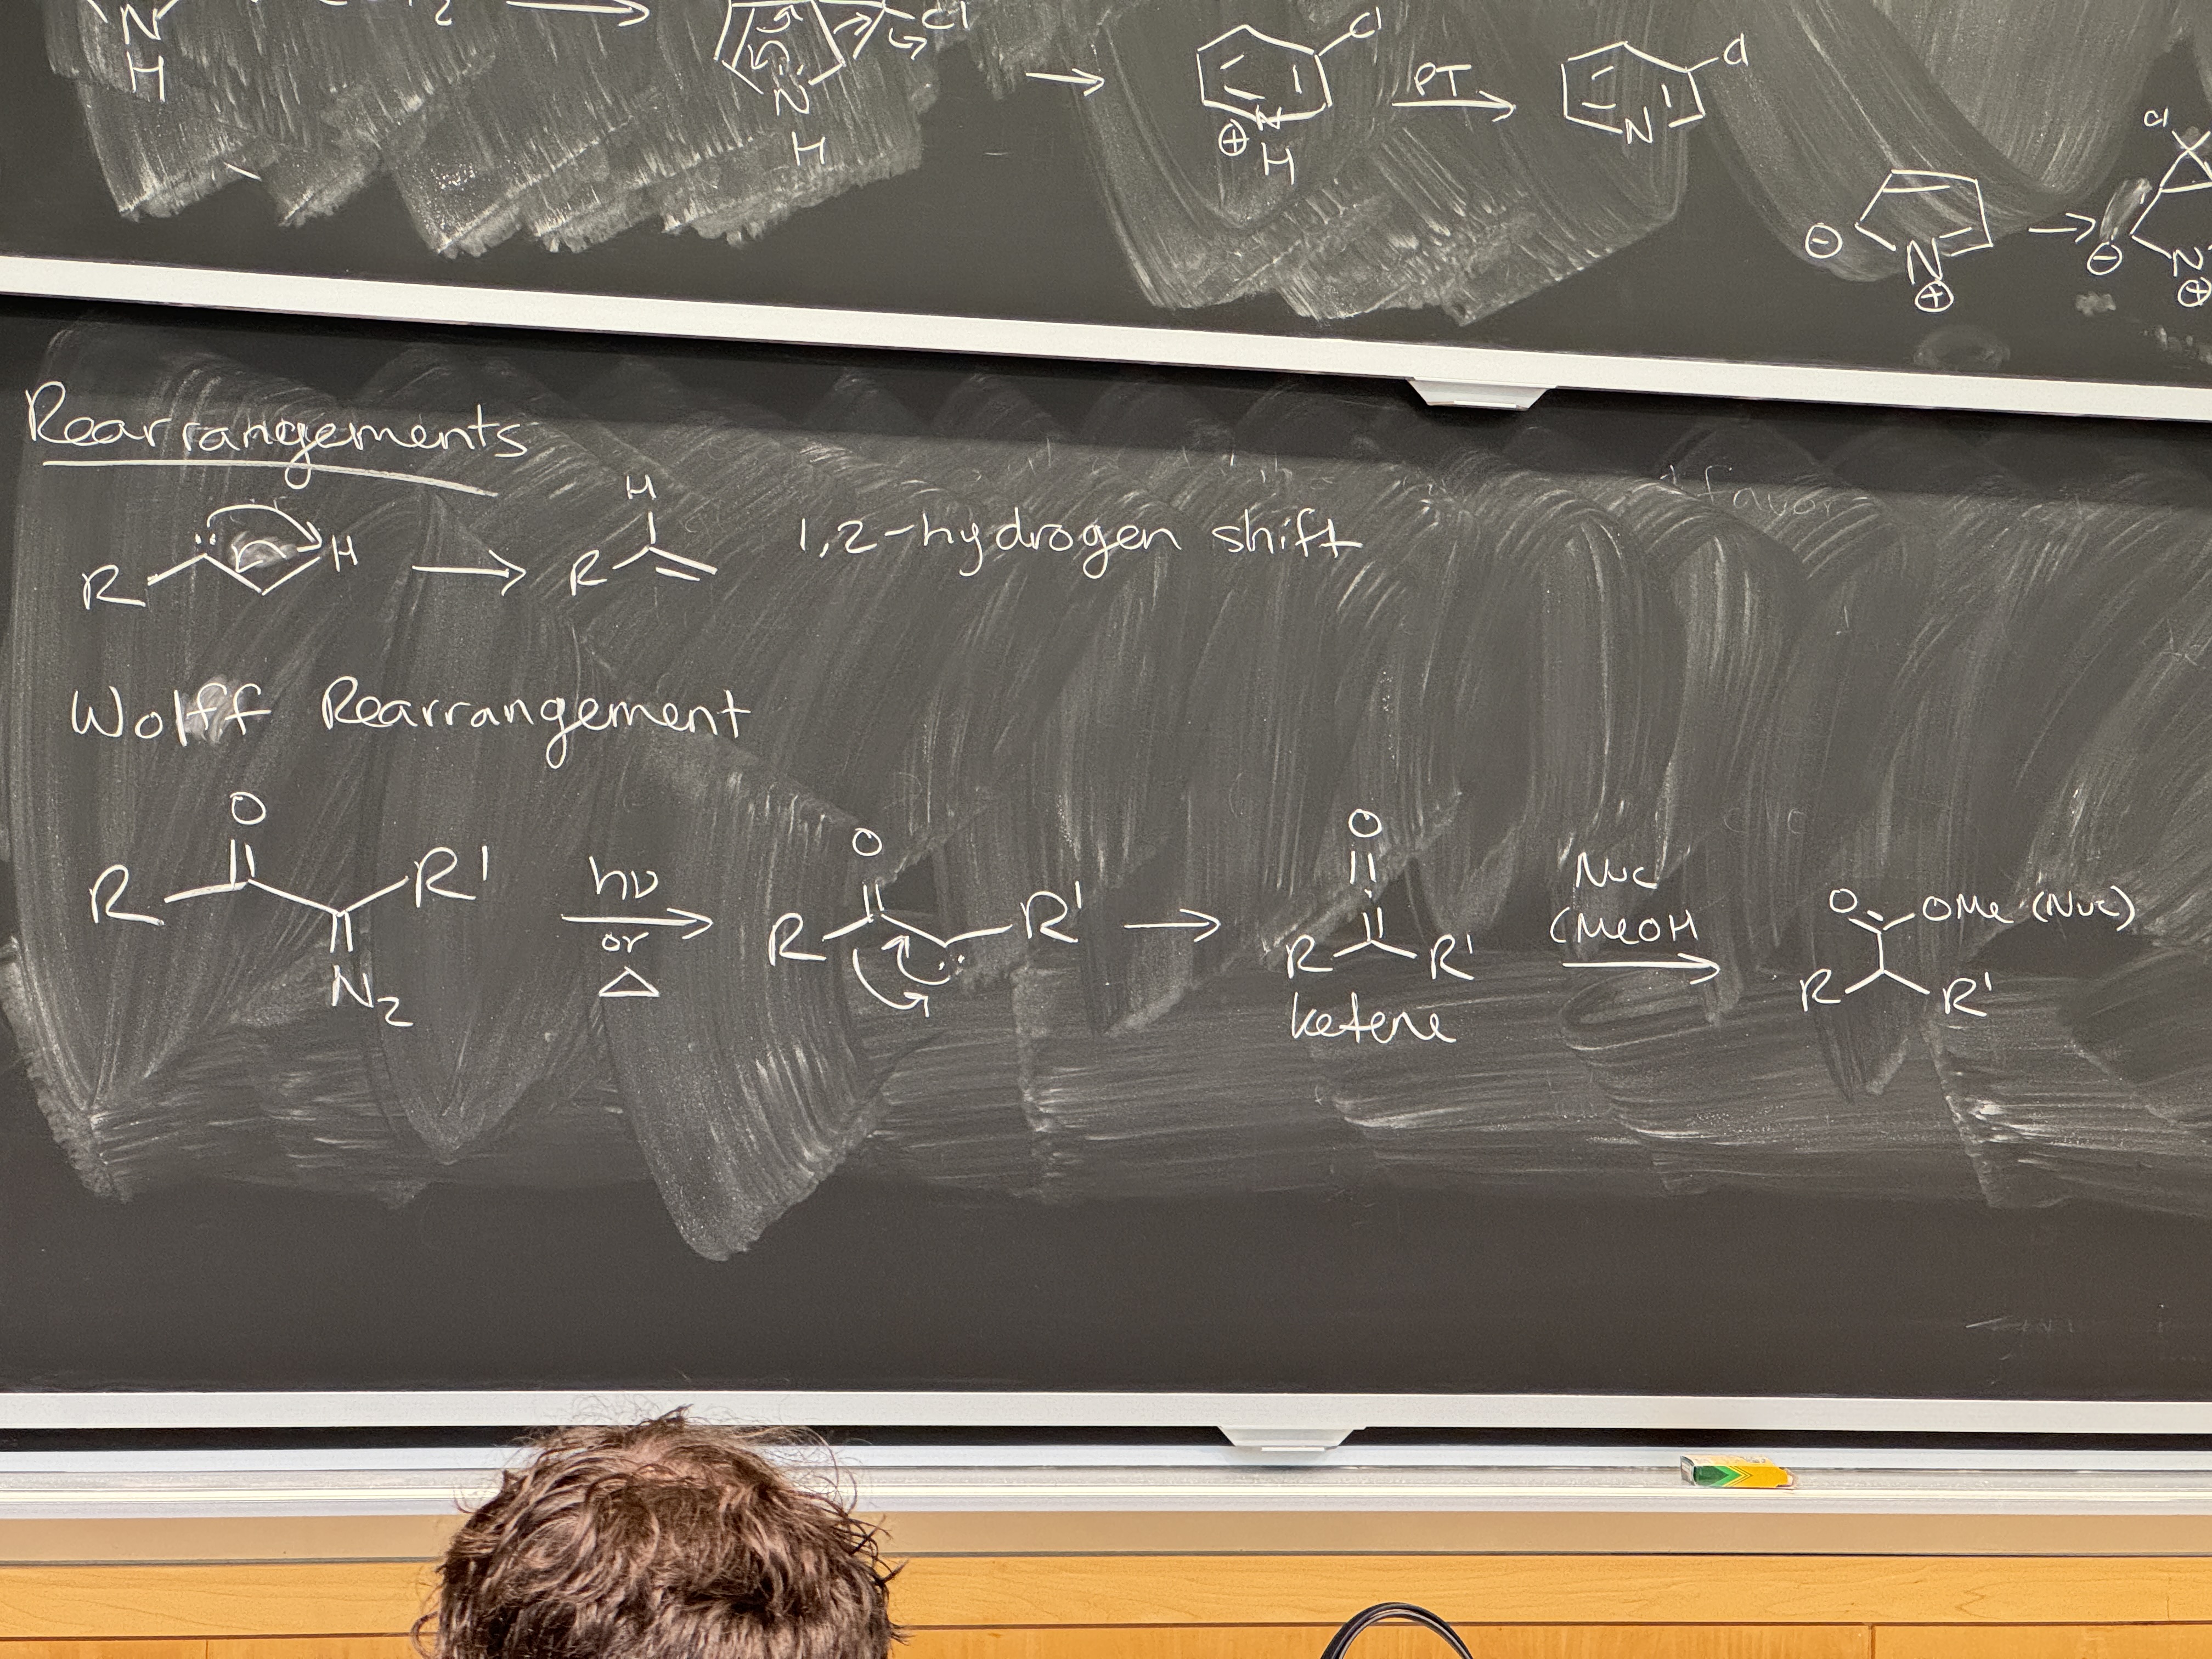 N
H
2
Cl
N
H
Cl
⊕ N
H
PT
Cl
N
⊖
N
⊕
Cl
⊖
N
⊕
favor
Rearrangements
R .. H
H
R
1,2-hydrogen shift
Wolff Rearrangement
O
R R'
N2
hν
or
△
O
R R'
..
O
R R'
ketene
Nuc
(MeOH
O OMe (Nuc)
R R'